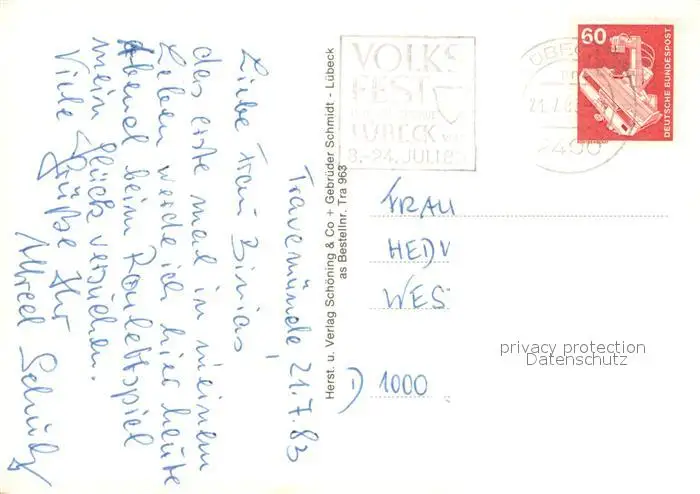 Travemünde, 21.7.83
Liebe Frau
das erste mal in meinem
Leben werde ich hier heute
Abend beim Roulettspiel
mein Glück versuchen.
Viele Grüße Ihr
Alfred
Herst. u. Verlag Schöning & Co + Gebrüder Schmidt - Lübeck
as Bestellnr. Tra 963
VOLKS
FEST
LÜBECK
3.-24. JULI 83
21.7.83
2400
60
DEUTSCHE BUNDESPOST
FRAU
HEDV
WES
1000
privacy protection
Datenschutz